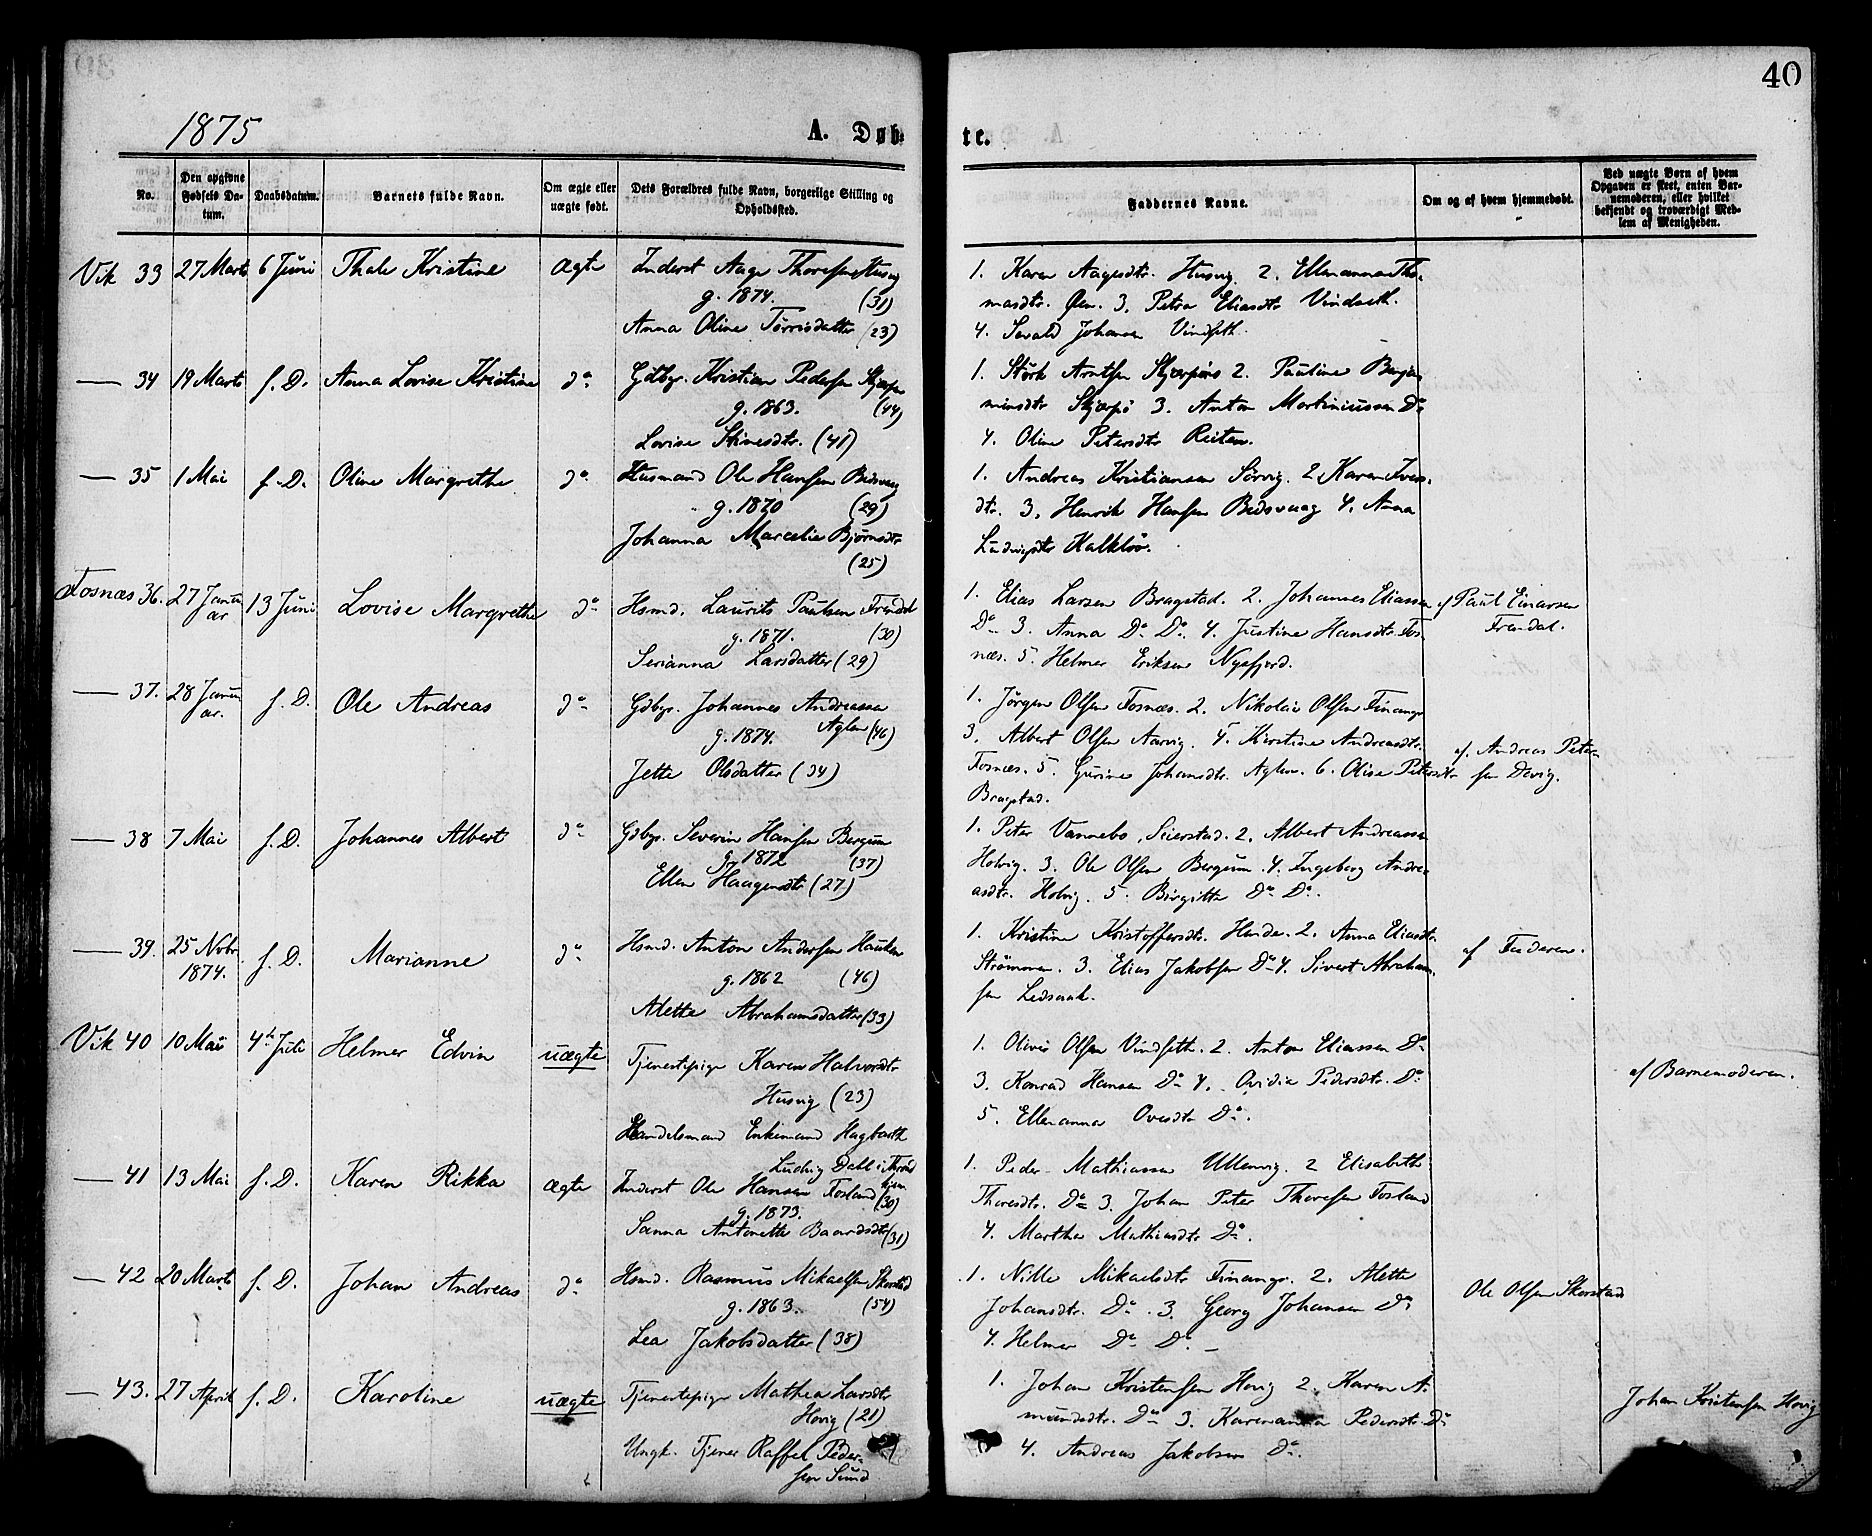 40
1875
A. Døb-
te.
No.
Den opgivne Fødsels Da-tum.
Daabsdatum.
Barnets fulde Navn.
Om ægte eller uægte født.
Dets Forældres fulde Navn, borgerlige Stilling og Opholdssted.
Faddernes Navne.
Om og af hvem hjemmedøbt.
Ved uægte Børn af hvem Opgaven er skeet, enten Bar-nemoderen, eller hvilket bekjendt og troværdigt Med-lem af Menigheden.
Vik 33 27 Marts 6 Juni Thale Kristine ægte Inderst Aage Thoresen Husvig
g. 1874. (31)
Anna Oline Tørrisdatter (23)
1. Karen Aagesdtr. Husvig. 2. Ellenanna Tho-
masdtr. Øen. 3. Petra Eliasdtr Vindseth.
4. Johansen Vindseth.
— 34 19 Marts f. D. Anna Lovise Kristine do Gdbgr. Kristian Pedersen
g. 1863. (44)
Lovise Stinesdtr. (41)
1. Størk Arntsen 2. Pauline Benja-
minsdtr Skjærpö 3. Anton Martiniussen Do
4. Oline Petersdtr Reiten.
— 35 1 Mai f. D. Oline Margrethe do Husmand Ole Hansen Bedsvaag
g. 1870 (29)
Johanna Marcelie Bjørnsdtr
(25)
1. Andreas Kristiansen Sørvig. 2. Karen Ivers-
dtr. 3. Henrik Hansen Bedsvaag 4. Anna
Ludvigsdtr Kalkløv.
Fosnæs 36. 27 Janu-
ar 13 Juni Lovise Margrethe do Hsmd. Laurits Paulsen Frendal
g. 1871. (30)
Serianna Larsdatter (29)
1. Elias Larsen Bragstad. 2. Johannes Eliassen
Do 3. Anna Do Do. 4. Justine Hansdtr. Fos-
næs. 5. Helmer Eriksen Nysfjord.
af Paul Einarsen
Frendal.
— 37. 28 Janu-
ar. f. D. Ole Andreas do Gdbgr. Johannes Andreassen
Aglen (46)
g. 1874.
Jette Olsdatter (34)
1. Jørgen Olsen Fosnæs. 2. Nikolai Olsen Finange
3. Albert Olsen Aarvig. 4. Kirstine Andreasdtr.
Fosnæs. 5. Gurine Johansdtr. Aglen. 6. Olise Petersdtr
Bragstad.
af. Andreas Peter-
sen Devig.
— 38 7 Mai f. D. Johannes Albert do Gdbgr. Severin Hansen Bergum
g. 1872 (37)
Ellen Haagensdtr (27)
1. Peter Vannebo, Seierstad. 2. Albert Andreassen
Holvig. 3. Ole Olsen Bergum. 4. Ingeborg Andre-
asdtr. Holvig. 5. Birgitte Do Do.
— 39. 25 Novbr
1874. f. D. Marianne do Hsmd. Anton Andersen Hauken
g. 1862 (46)
Alette Abrahamsdatter (33)
1. Kristine Kristoffersdtr. 2. Anna Eliasdtr.
Strömmen. 3. Elias Jakobsen Do 4. Sivert Abraham-
sen Ledsaak.
af Faderen.
Vik 40 10 Mai 4de Juli Helmer Edvin uægte Tjenestepige Karen Halvorsdtr
Husvig (23)
Handelsmand Enkemand Hagbarth
Ludvig Dahl i Thrond-
hjem
1. Olivis Olsen Vindseth. 2. Anton Eliassen Do
3. Konrad Hansen Do 4. Ovidia Pedersdtr. Do
5. Ellenanna Ovesdtr Do.
af Barnemoderen.
— 41 13 Mai f. D. Karen Rikka ægte Inderst Ole Hansen Fosland (30)
g. 1873.
Sanna Antonette Baardsdtr (31)
1. Peder Mathiassen Ullenvig. 2 Elisabeth
Thoresdtr. Do 3. Johan Peter Thoresen Fosland
4. Martha Mathiasdtr Do.
— 42 20 Marts f. D. Johan Andreas do Hsmd. Rasmus Mikaelsen Skorstad
g. 1863. (54)
Lea Jakobsdatter (38)
1. Nille Mikaelsdtr Finange. 2. Alette
Johansdtr. Do. 3. Georg Johansen Do
4. Helmer Do Do. —
Ole Olsen Skorstad
— 43. 27 April f. D. Karoline uægte Tjenestepige Mathea Larsdtr
Hovig (21)
Ungk. Tjener Raffel Peder-
sen Sund
1. Johan Kristensen Hovig 2. Karen A-
mundsdtr. Do 3. Karenanna Pedersdtr. Do
4. Andreas Jakobsen Do.
Johan Kristensen Hovig